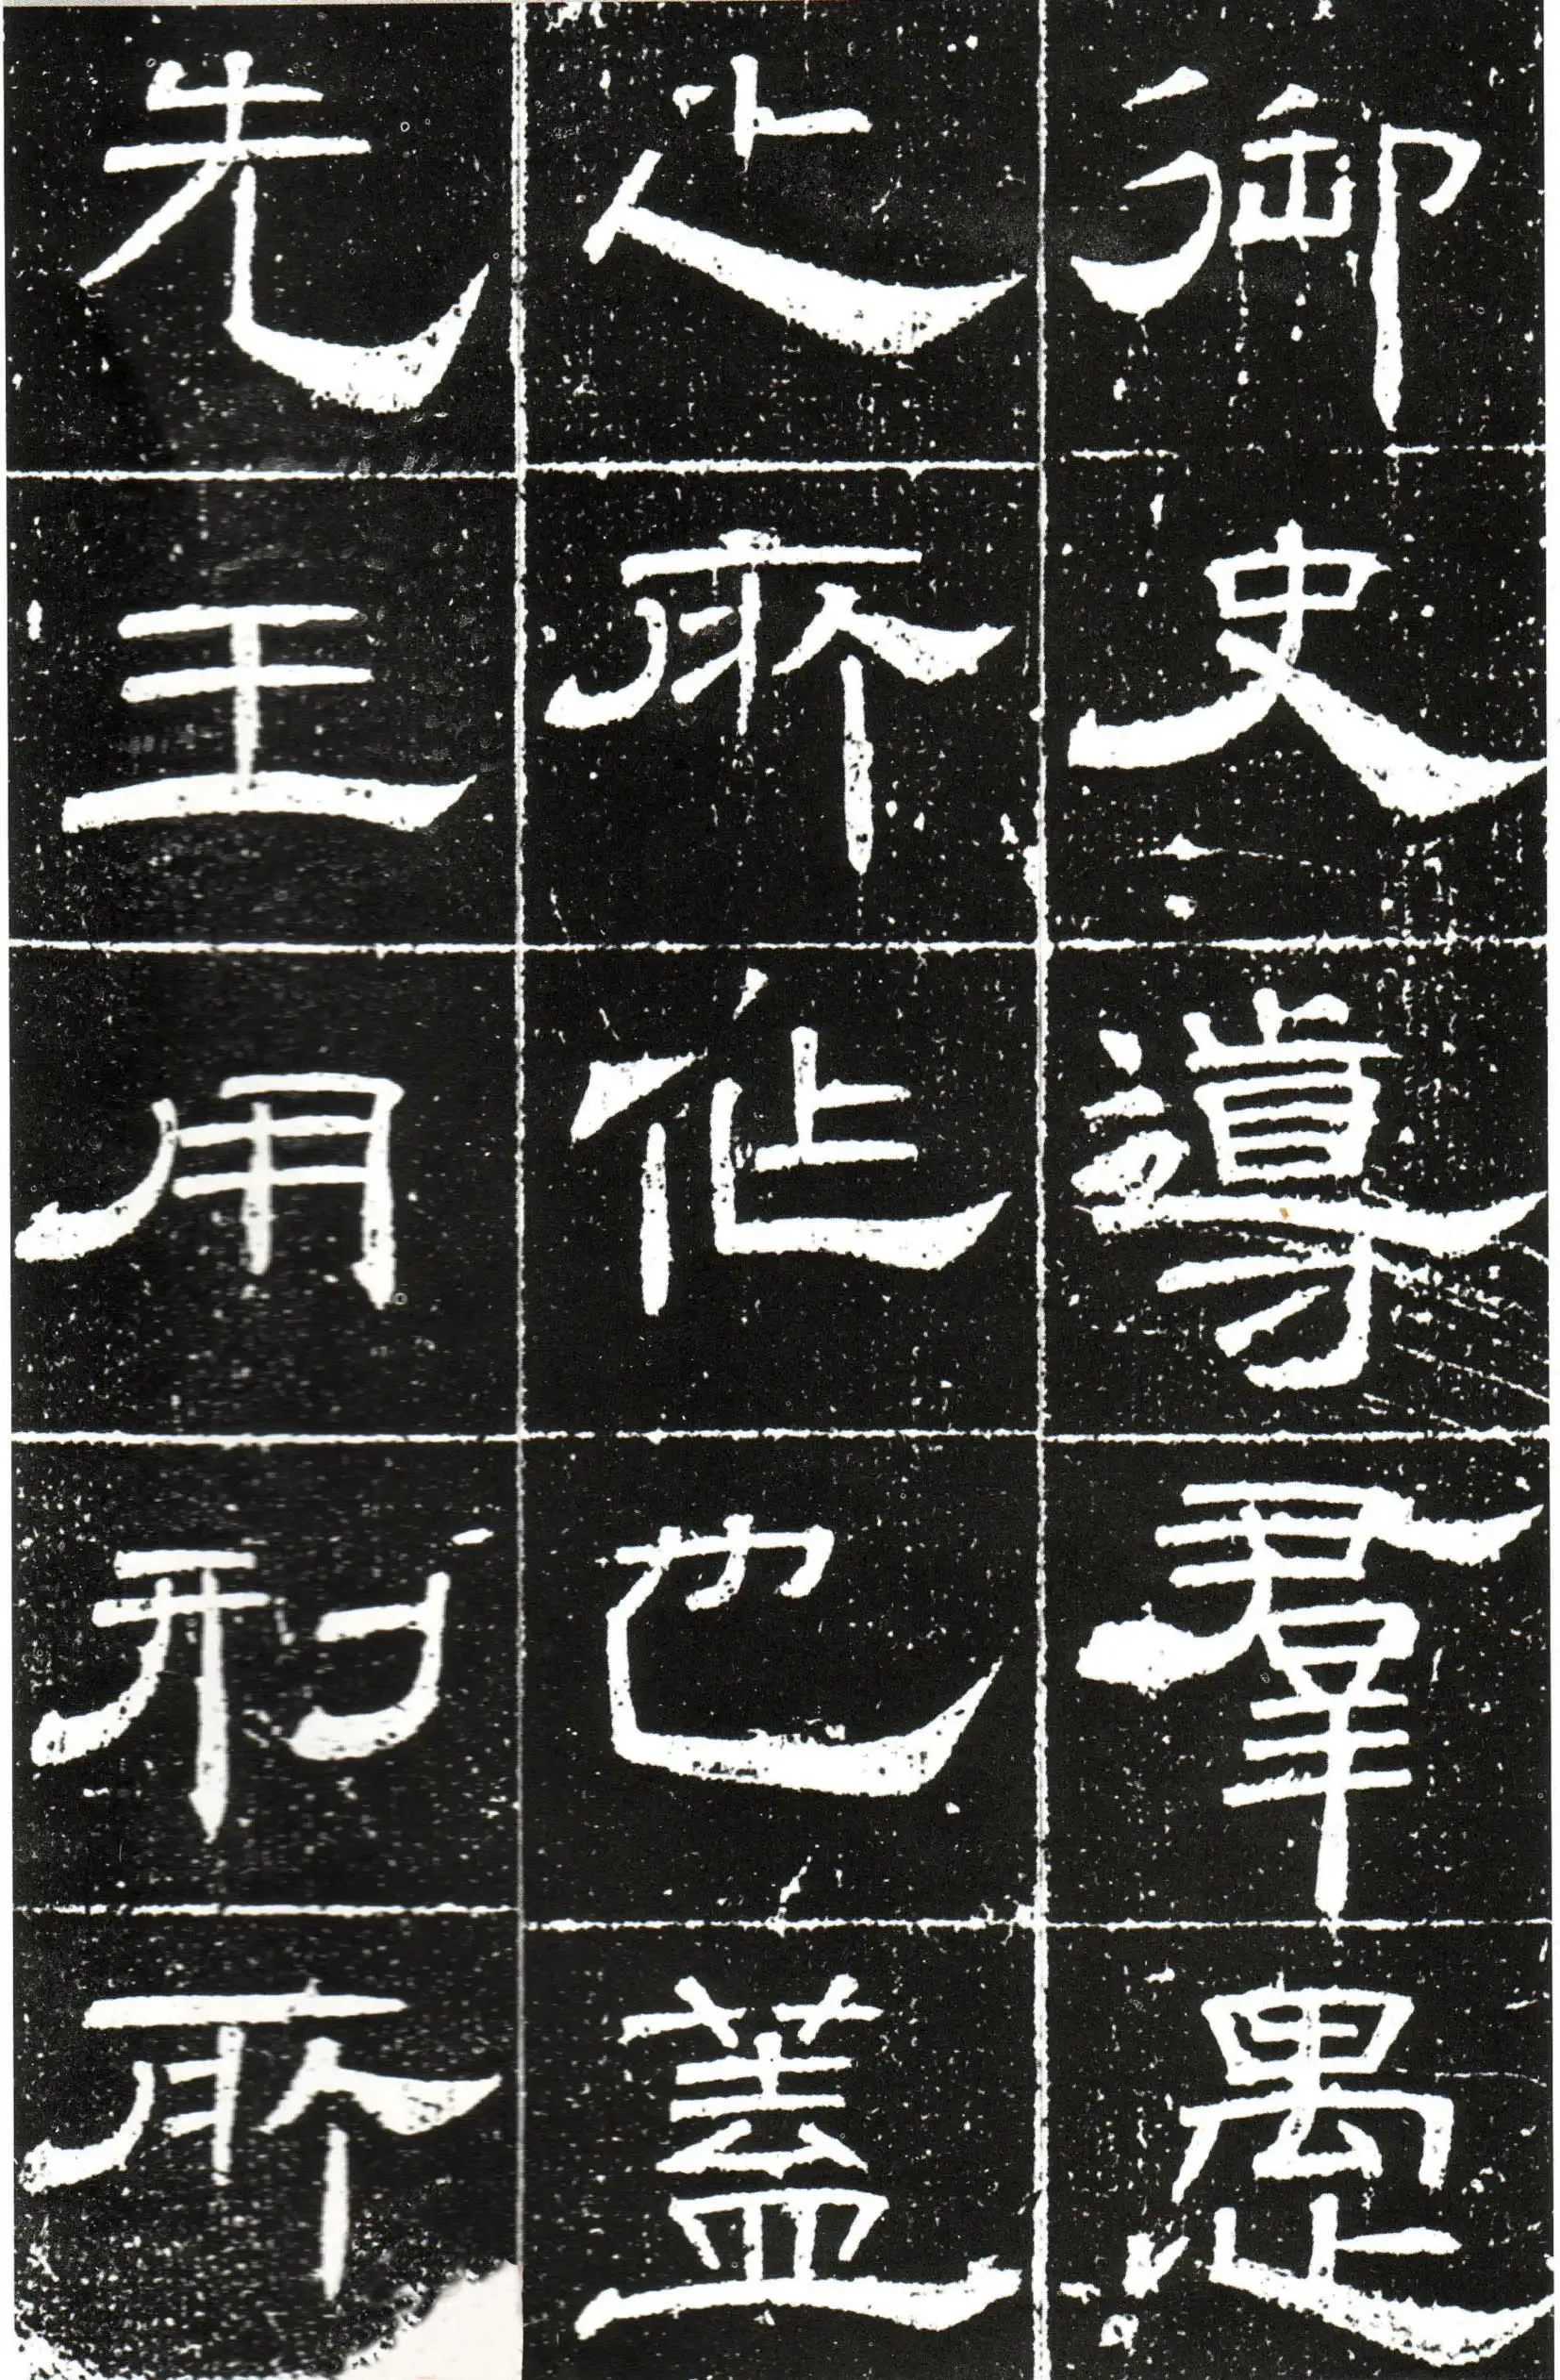 御史導羣愚
之所作也蓋
先王用刑所